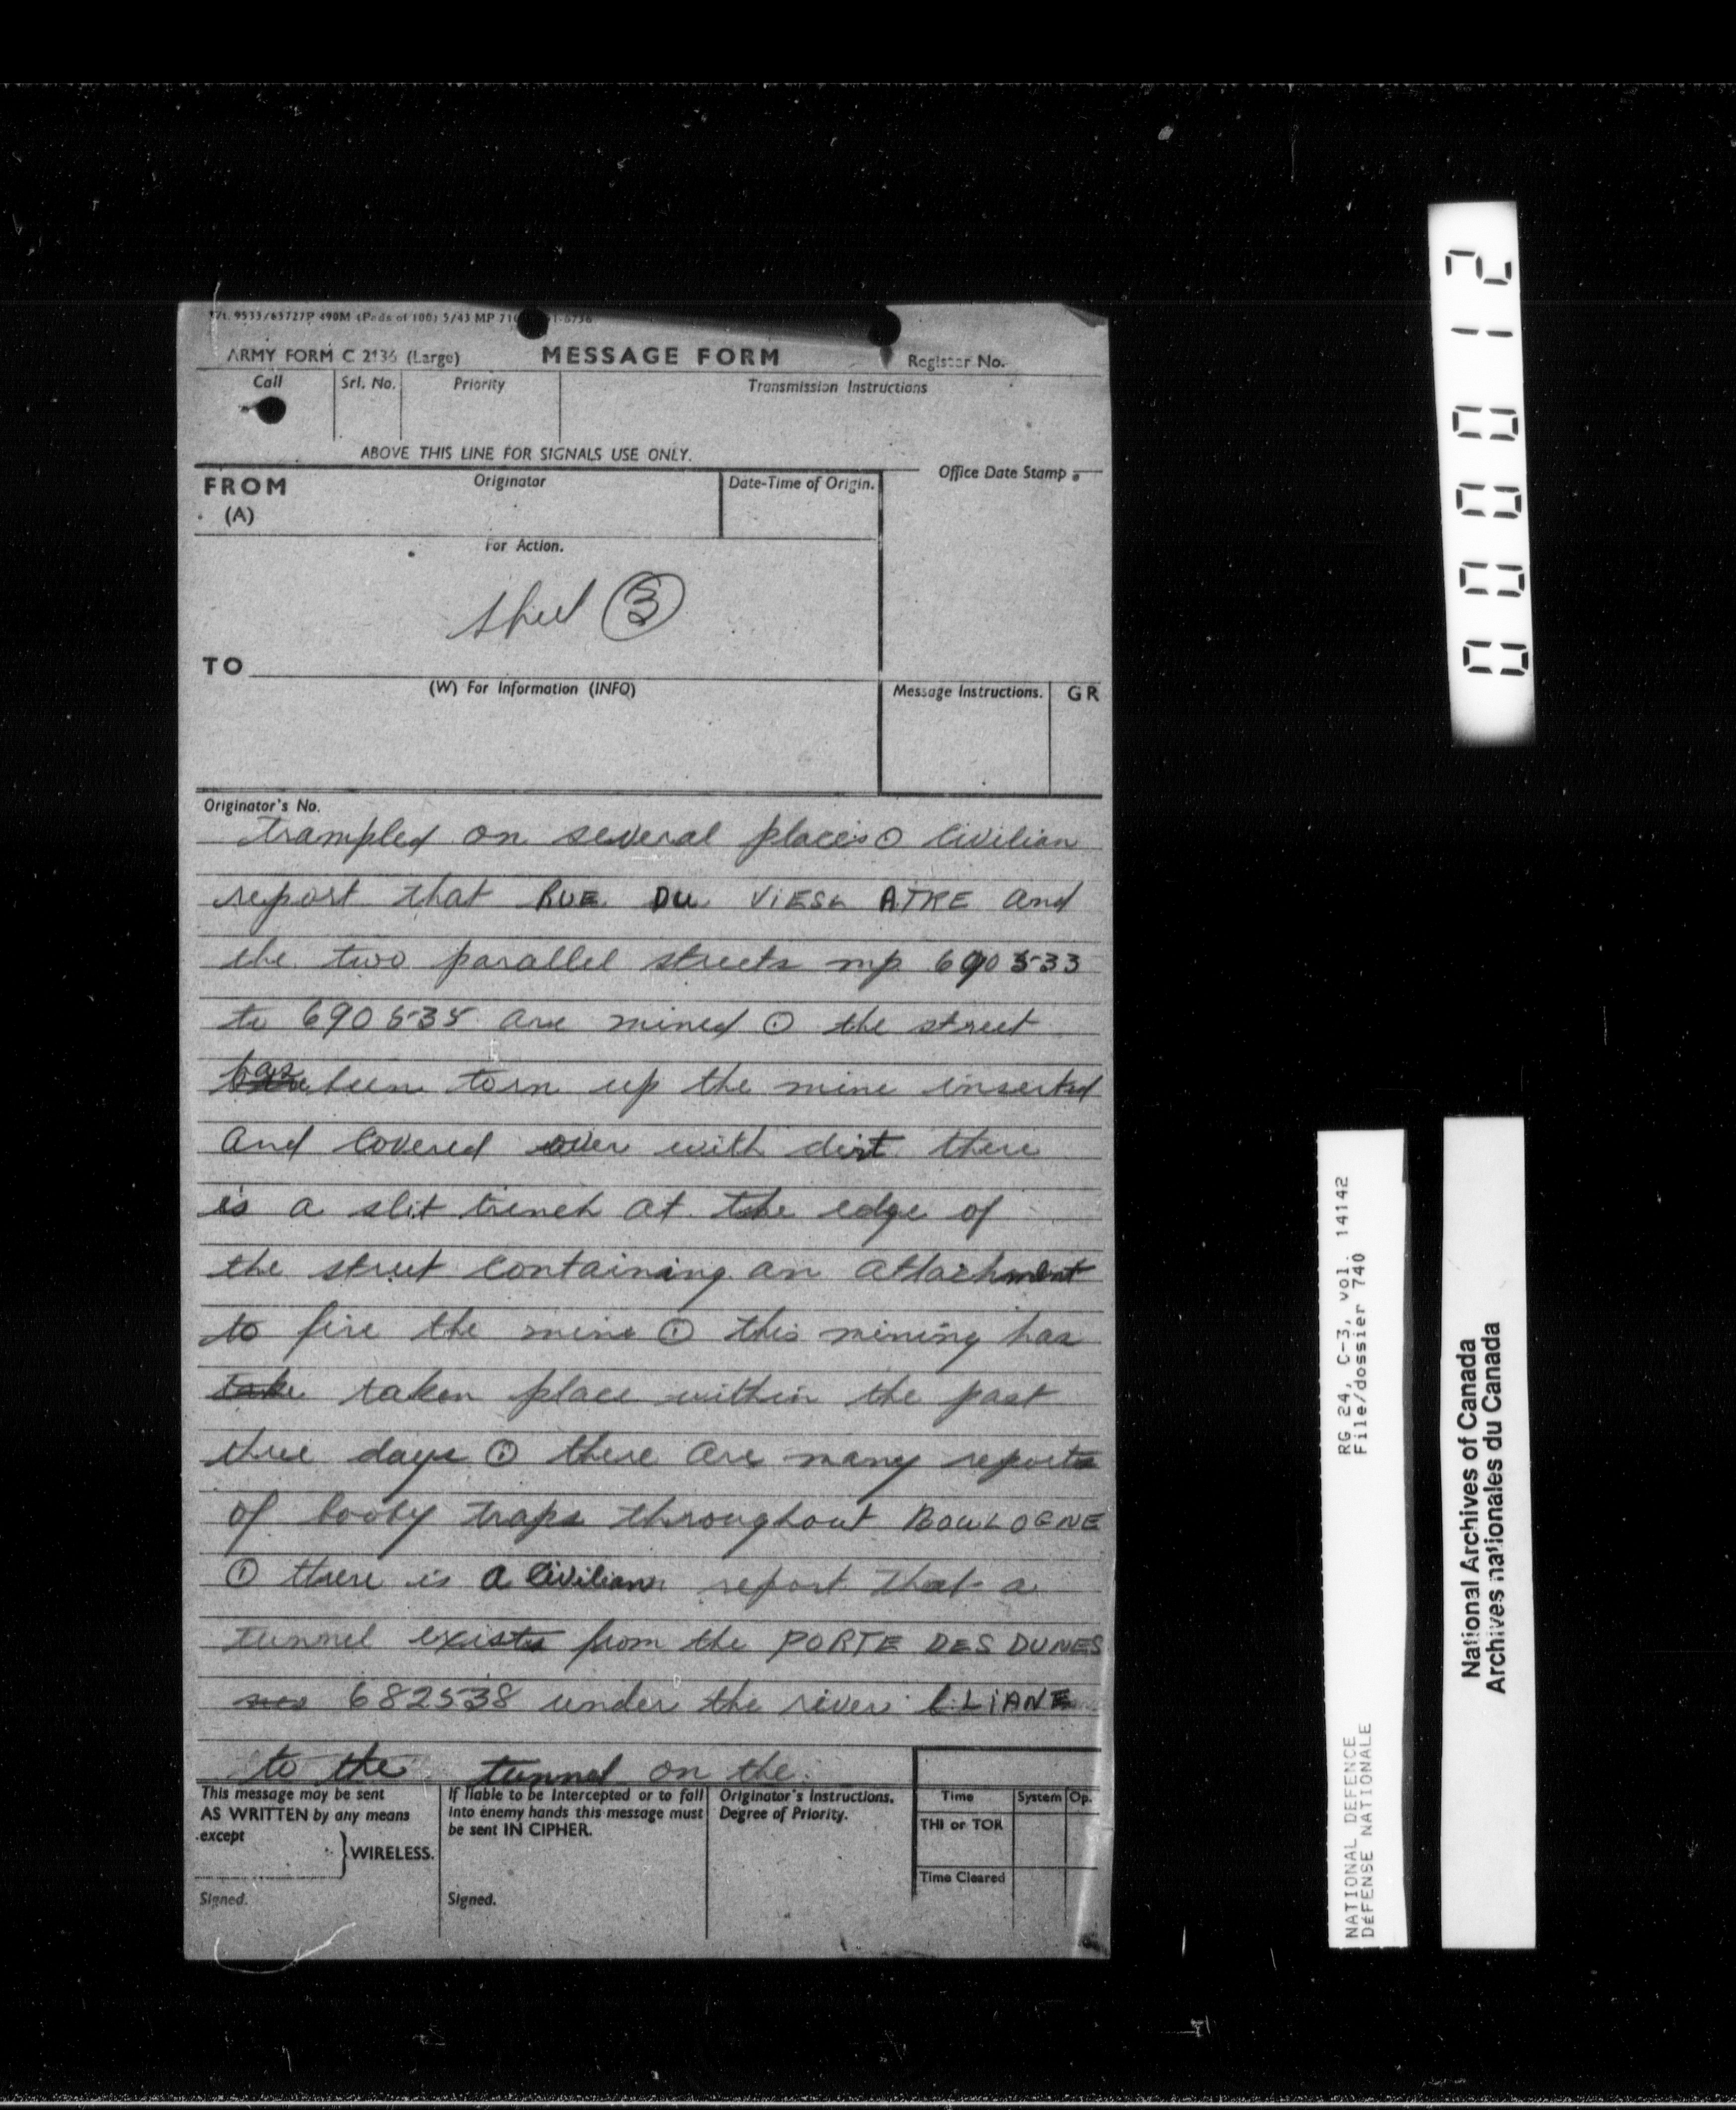 ARMY FORM C 2136 (Large) MESSAGE FORM Register No.
Call Srl. No. Priority Transmission Instructions
ABOVE THIS LINE FOR SIGNALS USE ONLY.
FROM (A) Originator Date-Time of Origin. Office Date Stamp
For Action.
sheet ③
TO
(W) For Information (INFO) Message Instructions. GR
Originator's No.
trampled on several places ⊙ Civilian
report that RUE DU VIESL ATRE and
the two parallel streets mp 690533
to 690535 are mined ⊙ the street
has been torn up the mine inserted
and covered over with dirt there
is a slit trench at the edge of
the street containing an attachment
to fire the mine ⊙ this mining has
take taken place within the past
three days ⊙ there are many reports
of booby traps throughout BOULOGNE
⊙ there is a civilian report that a
tunnel exists from the PORTE DES DUNES
682538 under the river LIANE
to the tunnel on the
This message may be sent AS WRITTEN by any means except } WIRELESS.
Signed.
If liable to be intercepted or to fall into enemy hands this message must be sent IN CIPHER.
Signed.
Originator's Instructions. Degree of Priority.
Time System Op.
THI or TOR
Time Cleared
000012
RG 24, C-3, vol. 14142
File/dossier 740
NATIONAL DEFENCE
DÉFENSE NATIONALE
National Archives of Canada
Archives nationales du Canada